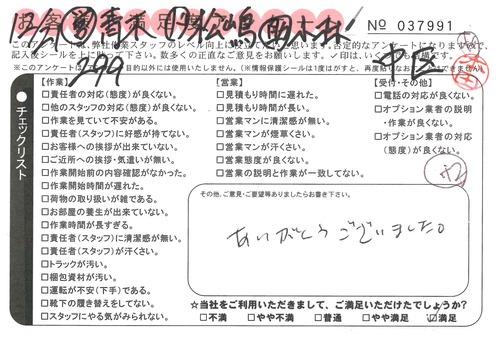 お客様満足度
12/9 青木 松嶋 木林
№ 037991
299
中区
このアンケートは、弊社作業スタッフのレベル向上に
記入後シールを上に
※このアンケートは
目的以外には使用いたしません。(※情報保護シールは1度はがすと、再度貼り
チェックリスト
【作業】
□責任者の対応(態度)が良くない。
□他のスタッフの対応(態度)が良くない。
□作業を見ていて不安がある。
□責任者(スタッフ)に好感が持てない。
□お客様への挨拶が出来ていない。
□ご近所への挨拶・気遣いが無い。
□作業開始前の内容確認がなかった。
□作業開始時間が遅れた。
□荷物の取り扱いが雑である。
□お部屋の養生が出来ていない。
□作業時間が長すぎる。
□責任者(スタッフ)に清潔感が無い。
□責任者(スタッフ)が汗くさい。
□トラックが汚い。
□梱包資材が汚い。
□運転が不安(下手)である。
□靴下の履き替えをしてない。
□スタッフにやる気がみられない。
【営業】
□見積もり時間に遅れた。
□見積もり時間が長い。
□営業マンに清潔感が無い。
□営業マンが煙草くさい。
□営業マンが汗くさい。
□営業態度が良くない。
□営業の説明と作業が一致してない。
【受付・その他】
□電話の対応が良くない。
□オプション業者の説明・作業が良くない。
□オプション業者の対応(態度)が良くない。
その他、ご意見・ご要望等ありましたらお書き下さい。
ありがとうございました。
☆当社をご利用いただきまして、ご満足いただけたでしょうか?
□不満 □やや不満 □普通 □やや満足 ☑満足